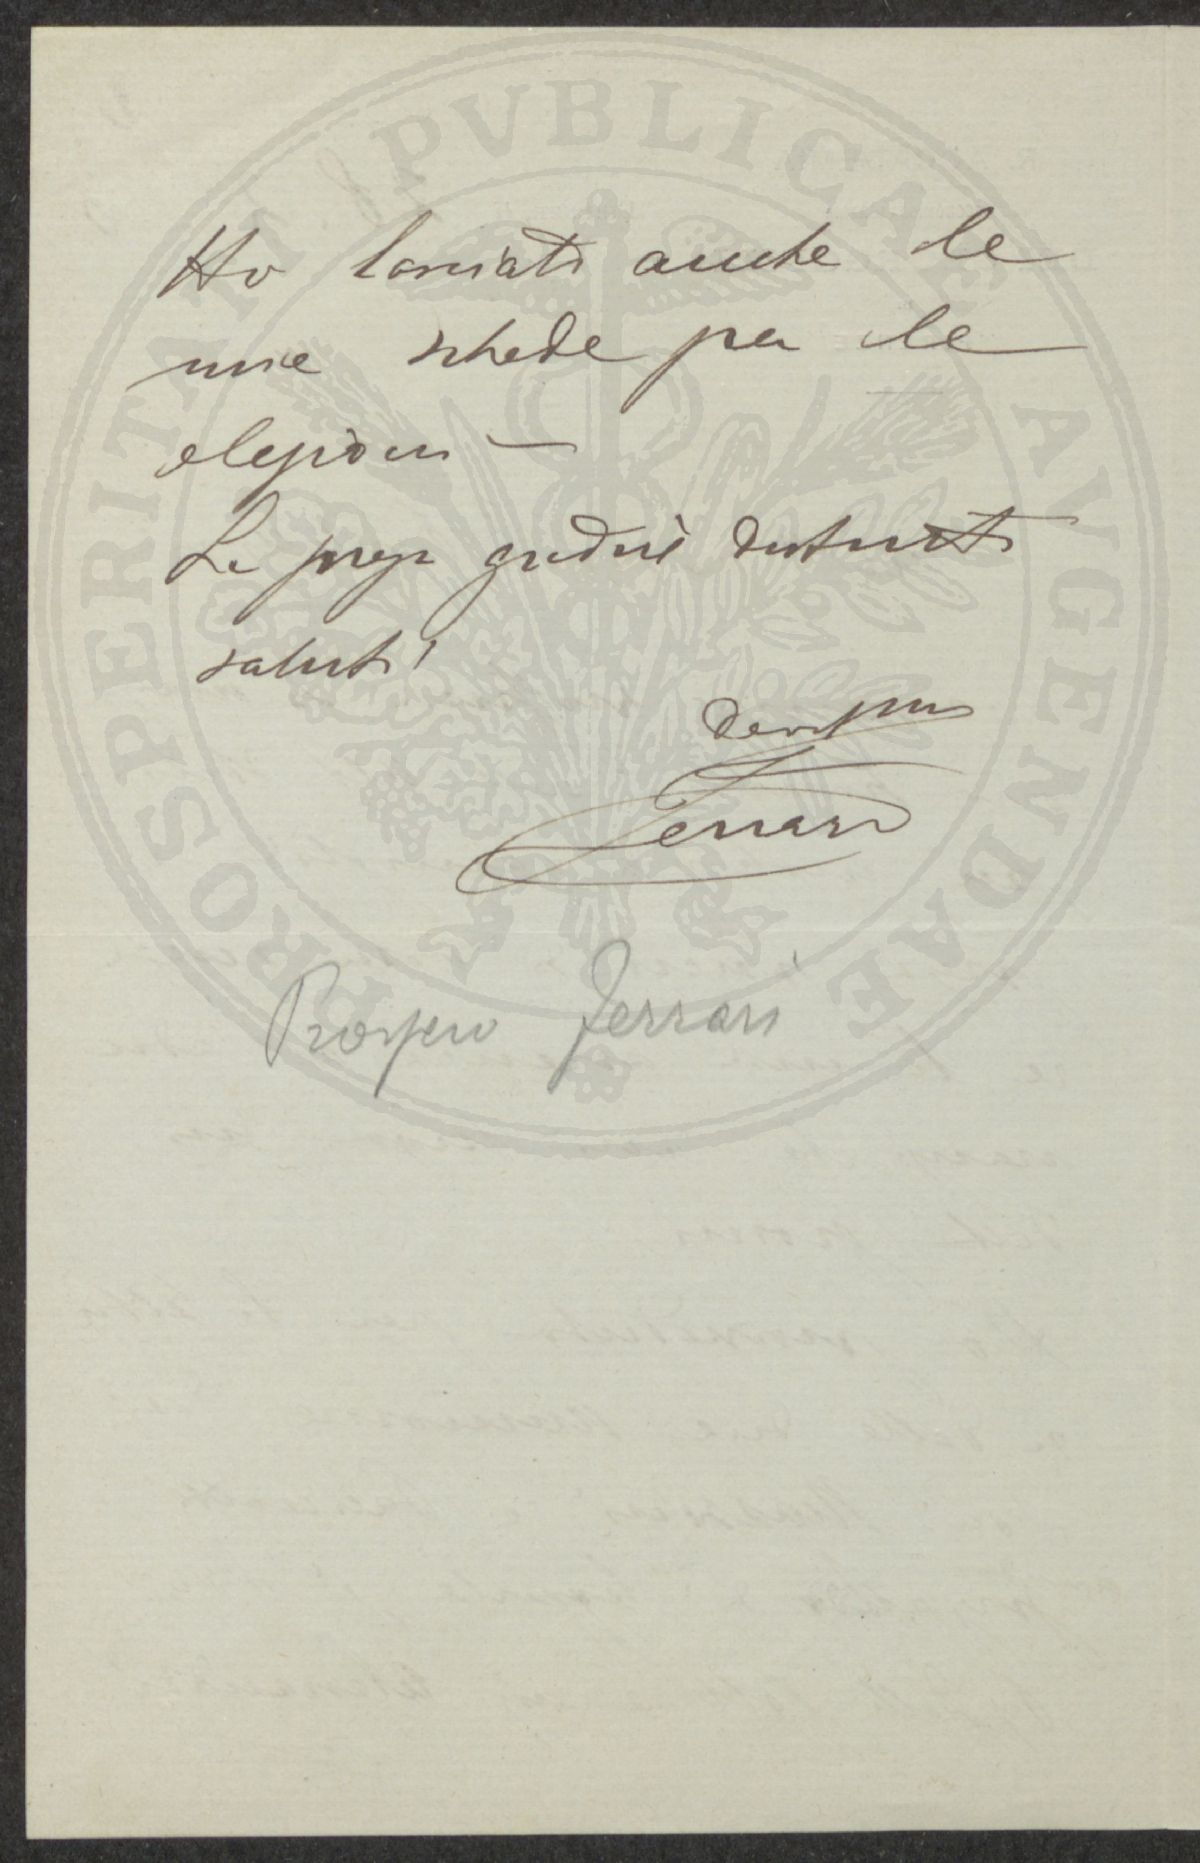 Ho lasciato anche le
mie schede per le
elezioni —
La prego gradire distinti
saluti
Dev.mo
Ferrari
Prospero Ferrari
PROSPERITATI PVBLICAE AVGENDAE